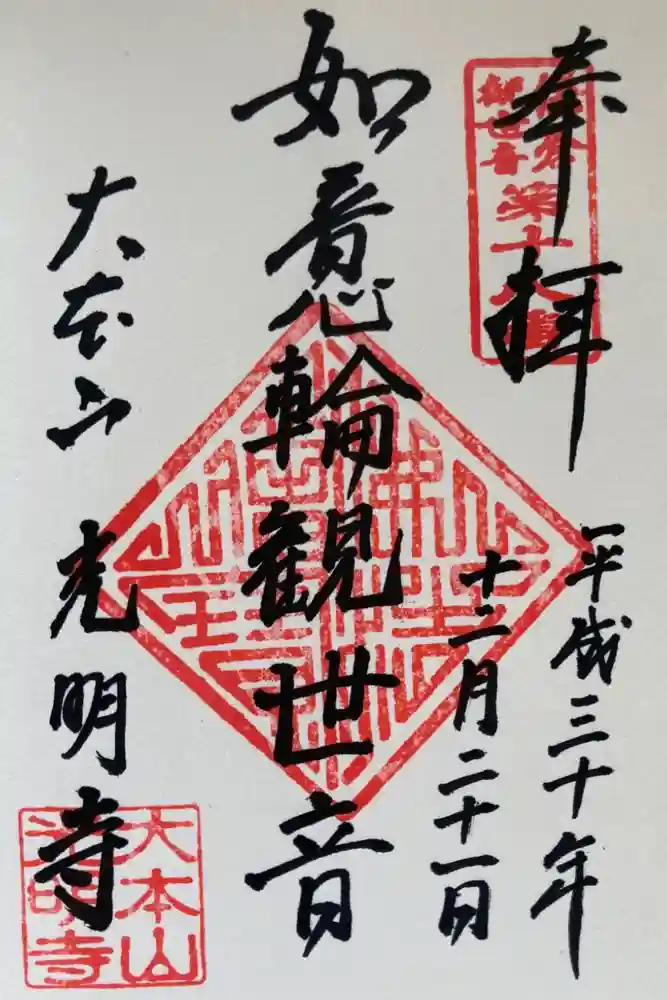 奉拝
鎌倉
観世音
第十八番
平成三十年
十二月二十一日
如意輪観世音
大本山 光明寺
大本山
光明寺